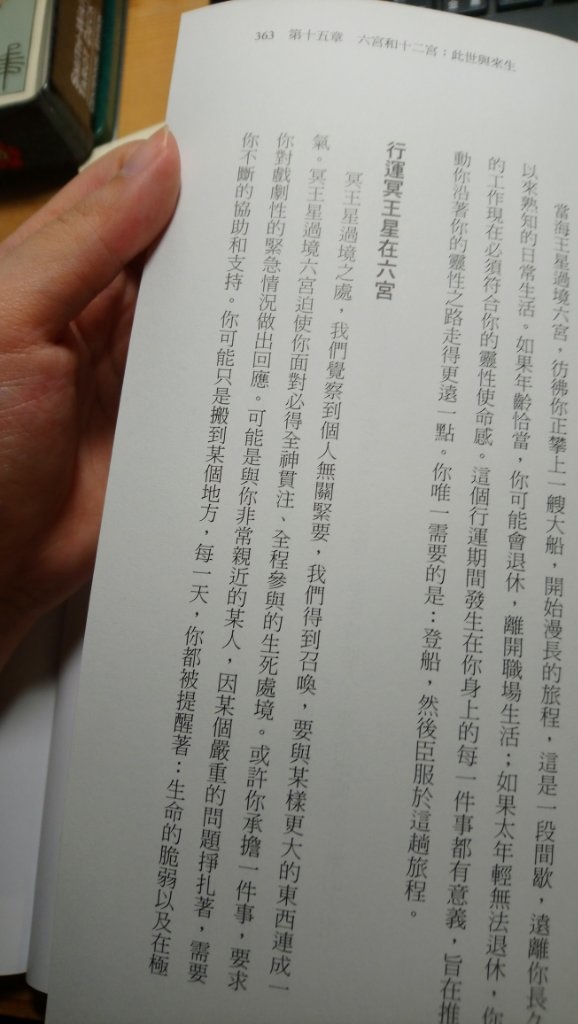 363 第十五章 六宮和十二宮：此世與來生
當海王星過境六宮，彷彿你正攀上一艘大船，開始漫長的旅程，這是一段間歇，遠離你長久
以來熟知的日常生活。如果年齡恰當，你可能會退休，離開職場生活；如果太年輕無法退休，你
的工作現在必須符合你的靈性使命感。這個行運期間發生在你身上的每一件事都有意義，旨在推
動你沿著你的靈性之路走得更遠一點。你唯一需要的是：登船，然後臣服於這趟旅程。
行運冥王星在六宮
冥王星過境之處，我們覺察到個人無關緊要，我們得到召喚，要與某樣更大的東西連成一
氣。冥王星過境六宮迫使你面對必得全神貫注、全程參與的生死處境。或許你承擔一件事，要求
你對戲劇性的緊急情況做出回應。可能是與你非常親近的某人，因某個嚴重的問題掙扎著，需要
你不斷的協助和支持。你可能只是搬到某個地方，每一天，你都被提醒著：生命的脆弱以及在極